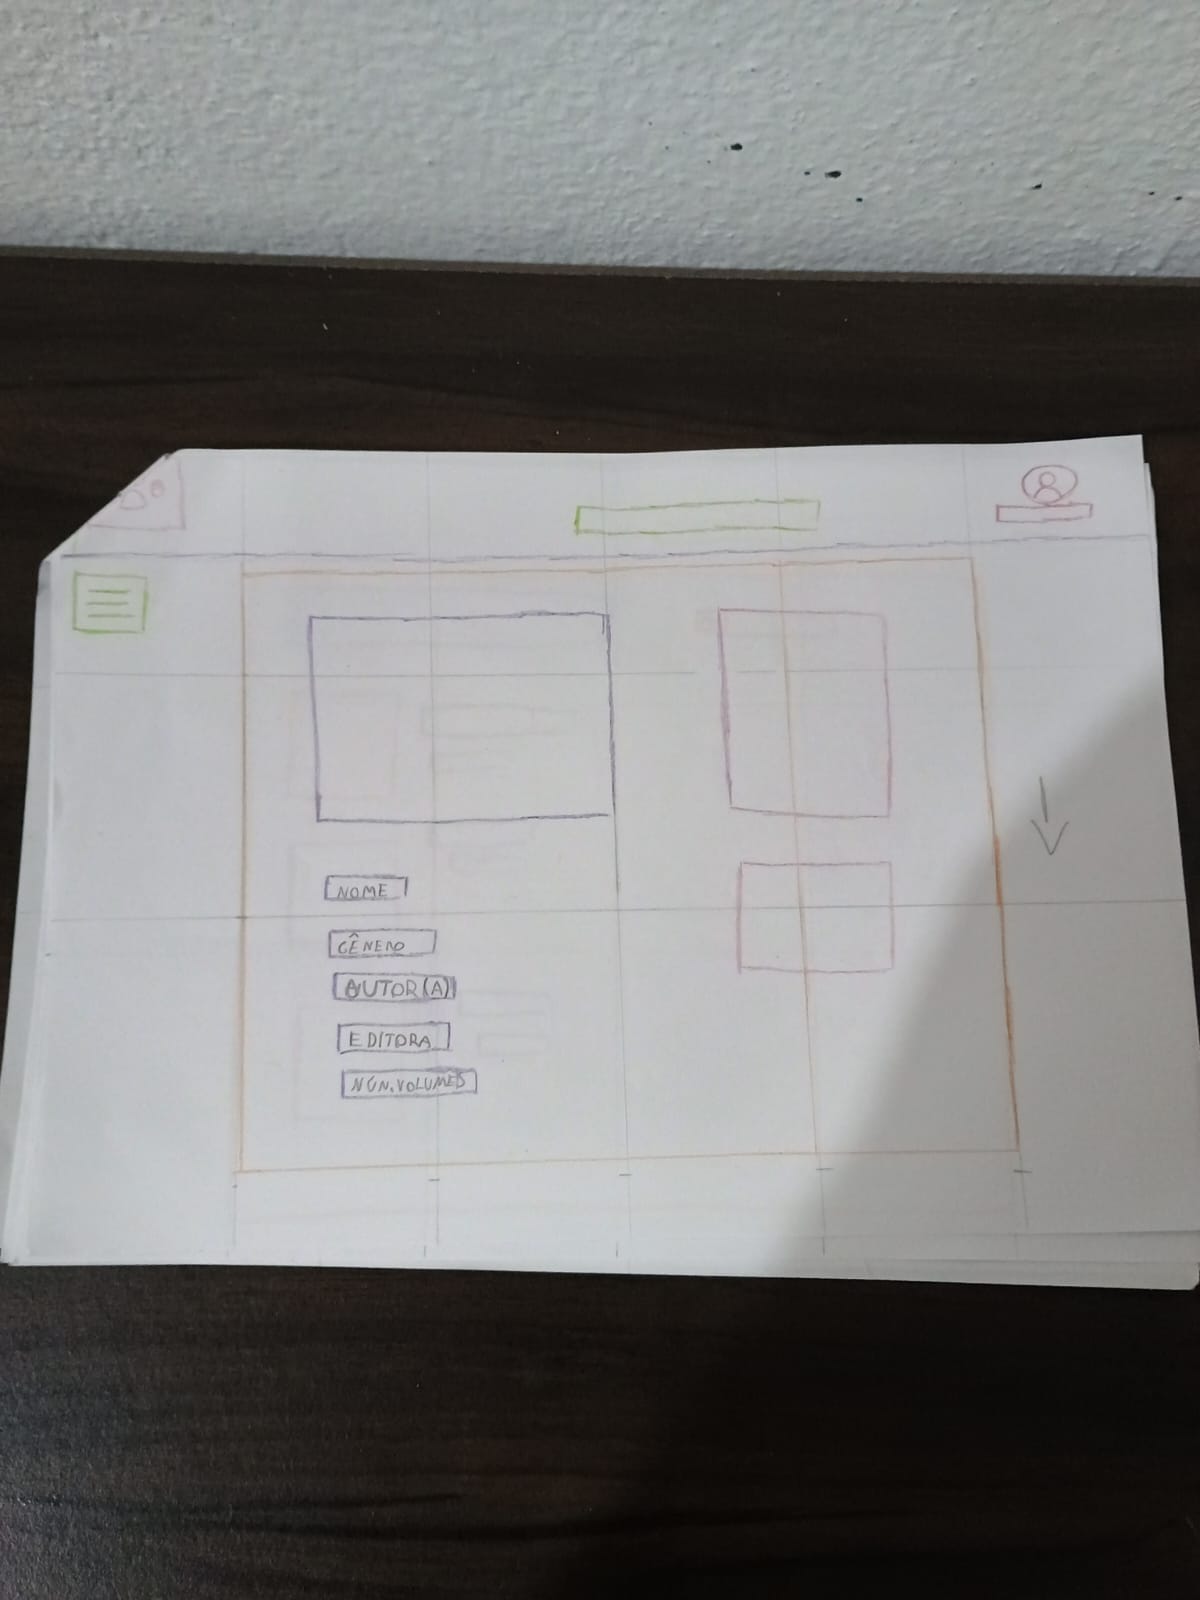 NOME
GÊNERO
AUTOR(A)
EDITORA
NÚN.VOLUMES